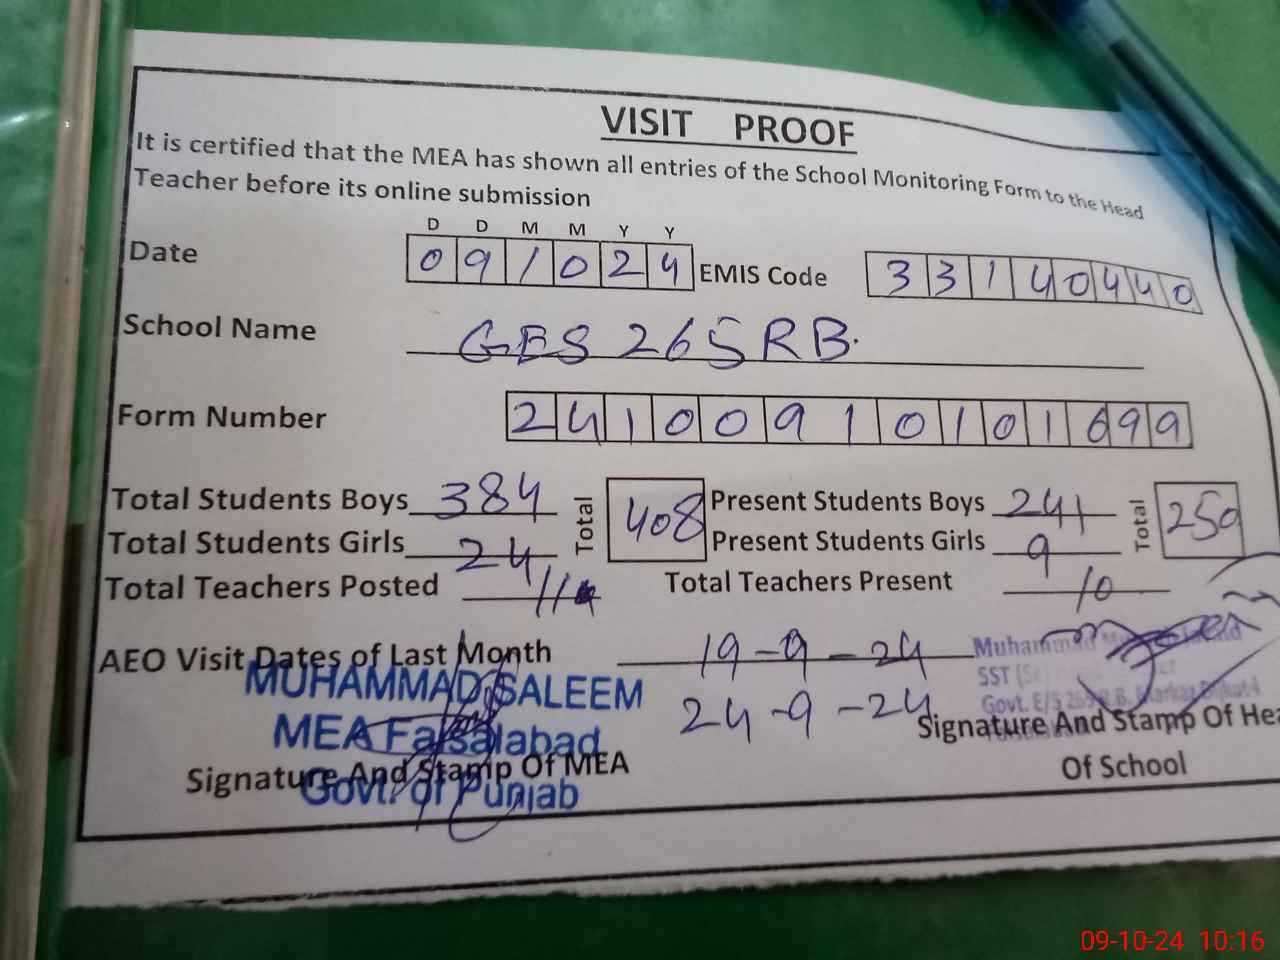 VISIT PROOF
It is certified that the MEA has shown all entries of the School Monitoring Form to the Head
Teacher before its online submission
D D M M Y Y
Date 0 9 1 0 2 4 EMIS Code 3 3 1 4 0 4 4 0
School Name GES 265 RB.
Form Number 2 4 1 0 0 9 1 0 1 0 1 6 9 9
Total Students Boys 384 Total 408 Present Students Boys 241 Total 250
Total Students Girls 24 Present Students Girls 9
Total Teachers Posted 11 Total Teachers Present 10
AEO Visit Dates of Last Month 19-9-24 Muhammad
24-9-24 SST
MUHAMMAD SALEEM Govt. E/S 265 R.B.
MEA Faisalabad Signature And Stamp Of Hea
Signature And Stamp Of MEA Of School
Govt. of Punjab
09-10-24 10:16